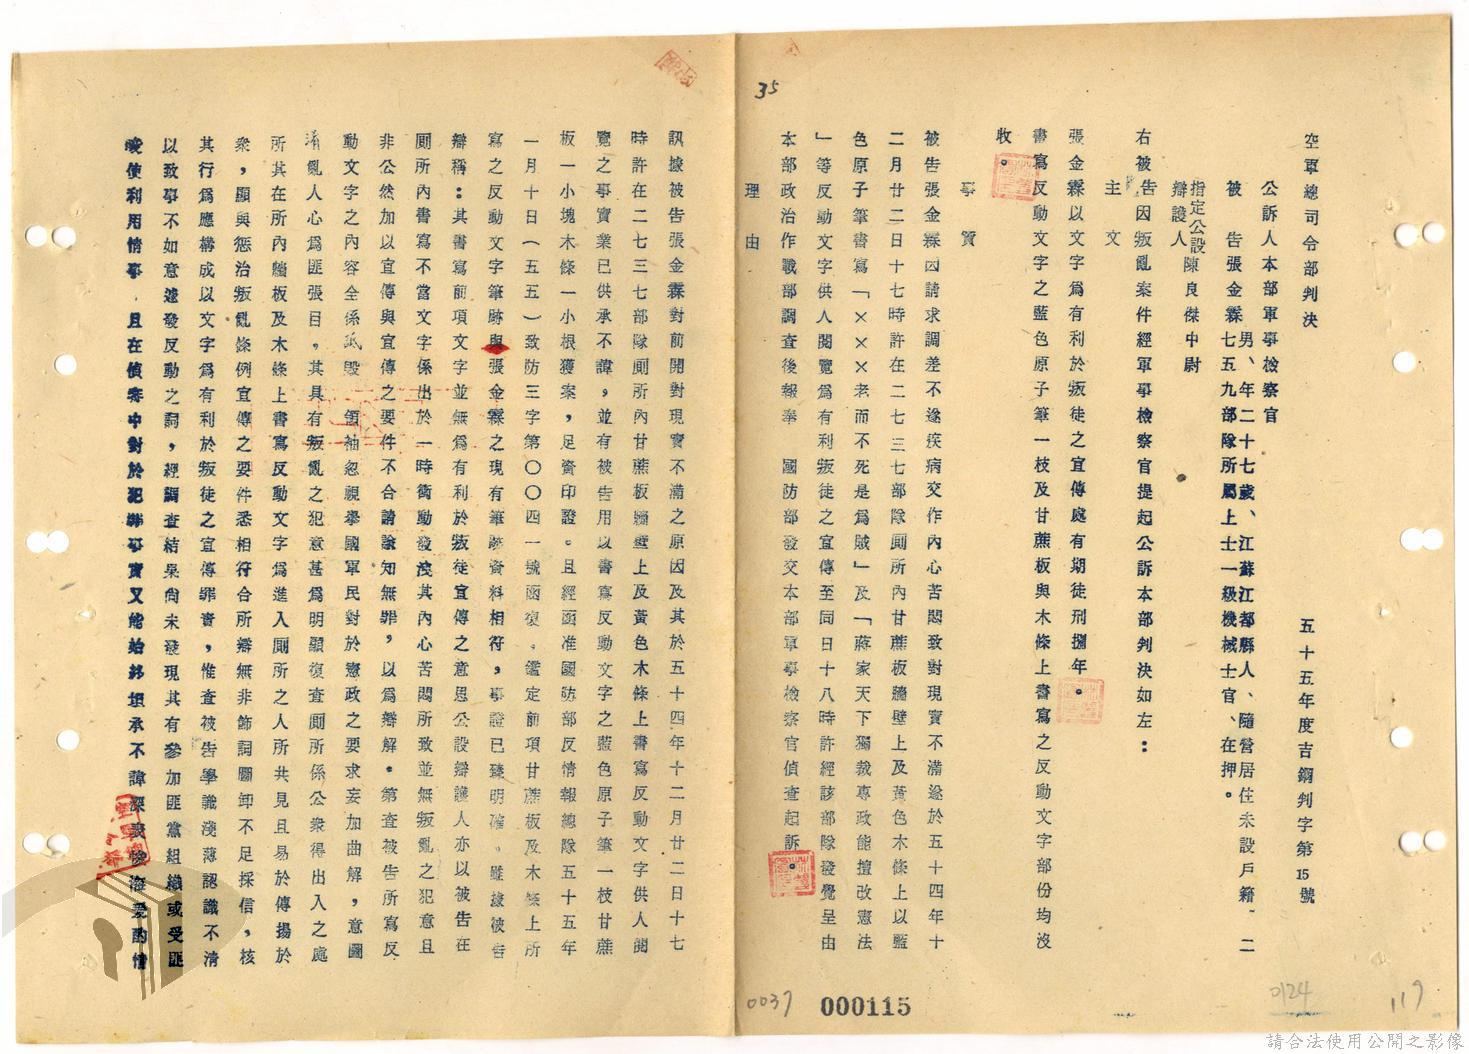 35
空軍總司令部判決
五十五年度吉鋼判字第15號
公訴人本部軍事檢察官
被告張金霖 男、年二十七歲、江蘇江都縣人、隨營居住未設戶籍、二
七五九部隊所屬上士一級機械士官、在押。
指定公設
辯護人 陳良傑中尉
右被告因叛亂案件經軍事檢察官提起公訴本部判決如左:
主文
張金霖以文字為有利於叛徒之宣傳處有期徒刑捌年。
書寫反動文字之藍色原子筆一枝及甘蔗板與木條上書寫之反動文字部份均沒
收。
事實
被告張金霖因請求調差不遂疾病交作內心苦悶致對現實不滿遂於五十四年十
二月廿二日十七時許在二七三七部隊厠所內甘蔗板牆壁上及黃色木條上以藍
色原子筆書寫「×××老而不死是為賊」及「蔣家天下獨裁專政能擅改憲法
」等反動文字供人閱覽為有利叛徒之宣傳至同日十八時許經該部隊發覺呈由
本部政治作戰部調查後報奉 國防部發交本部軍事檢察官偵查起訴。
理由
訊據被告張金霖對前開對現實不滿之原因及其於五十四年十二月廿二日十七
時許在二七三七部隊厠所內甘蔗板牆壁上及黃色木條上書寫反動文字供人閱
覽之事實業已供承不諱，並有被告用以書寫反動文字之藍色原子筆一枝甘蔗
板一小塊木條一小根獲案，足資印證。且經函准國防部反情報總隊五十五年
一月十日(五五)致防三字第〇〇四一號函復，鑑定前項甘蔗板及木條上所
寫之反動文字筆跡與張金霖之現有筆跡資料相符，事證已臻明確。雖據被告
辯稱:其書寫前項文字並無為有利於叛徒宣傳之意思公設辯護人亦以被告在
厠所內書寫不當文字係出於一時衝動發洩其內心苦悶所致並無叛亂之犯意且
非公然加以宣傳與宣傳之要件不合請諭知無罪，以為辯解。第查被告所寫反
動文字之內容全係詆毀 領袖忽視舉國軍民對於憲政之要求妄加曲解，意圖
淆亂人心為匪張目，其具有叛亂之犯意甚為明顯復查厠所係公衆得出入之處
所其在所內牆板及木條上書寫反動文字為進入厠所之人所共見且易於傳揚於
衆，顯與懲治叛亂條例宣傳之要件悉相符合所辯無非飾詞圖卸不足採信，核
其行為應構成以文字為有利於叛徒之宣傳罪責，惟查被告學識淺薄認識不清
以致事不如意遽發反動之詞，經調查結果尚未發現其有參加匪黨組織或受匪
唆使利用情事，且在偵審中對於犯罪事實又能始終坦承不諱深表悔悟爰酌情
0037
000115
0124
117
請合法使用公開之影像